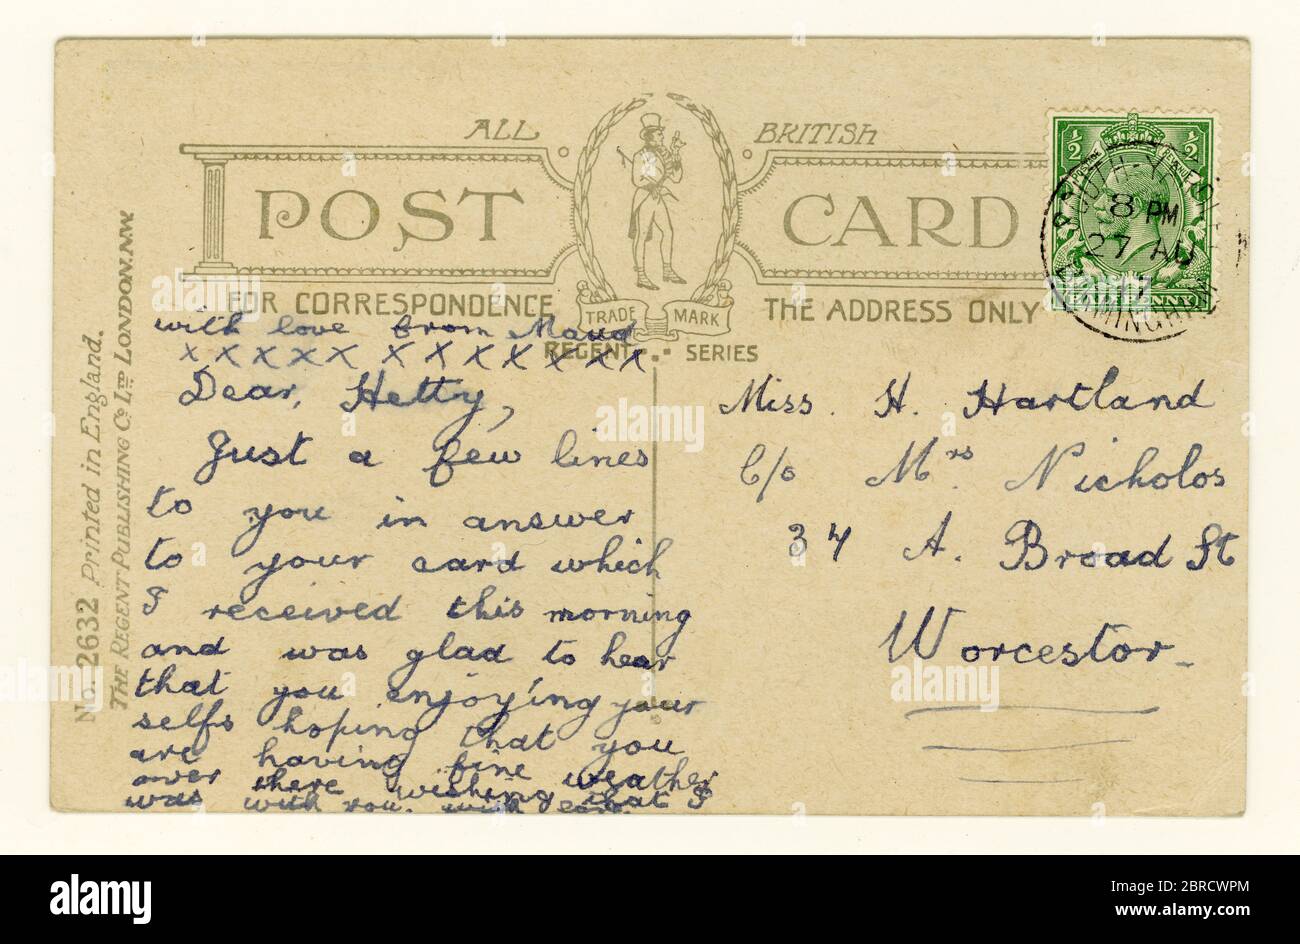 ALL BRITISH
POST CARD
FOR CORRESPONDENCE
TRADE MARK
THE ADDRESS ONLY
REGENT SERIES
No. 2632 Printed in England.
THE REGENT PUBLISHING Co LTD LONDON.N.W.
1/2 1/2
8 PM
27 AU
17
BIRMINGHAM
HALFPENNY
with love from Maud
x x x x x x x x x x x x
Dear, Hetty,
Just a few lines
to you in answer
to your card which
I received this morning
and was glad to hear
that you enjoying your
selfs hoping that you
are having fine weather
over there wishing that I
was with you. with
Miss. H. Hartland
C/o Mrs Nicholos
34 A. Broad St
Worcestor
alamy
Image ID: 2BRCWPM
www.alamy.com